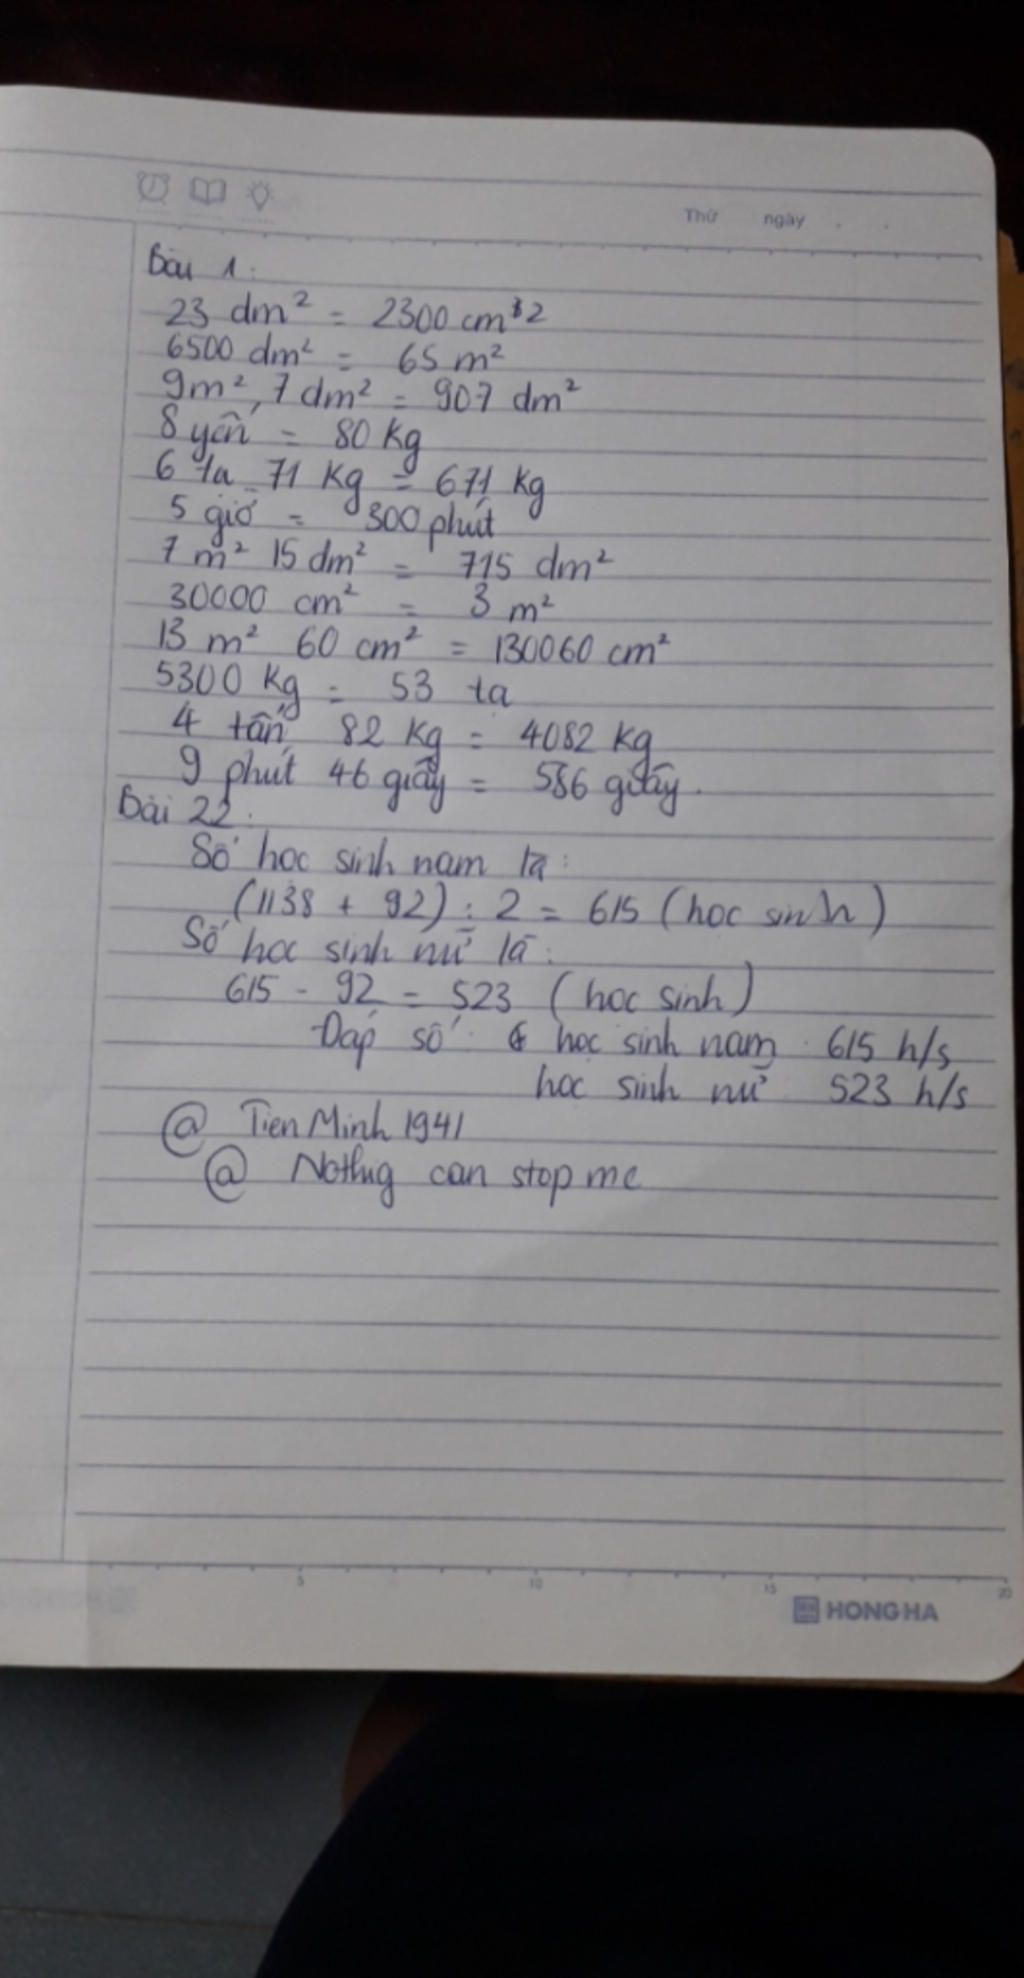 Thứ ngày
Bài 1:
23 dm² = 2300 cm²
6500 dm² = 65 m²
9m², 7 dm² = 907 dm²
8 yến = 80 kg
6 tạ 71 Kg = 671 kg
5 giờ = 300 phút
7 m² 15 dm² = 715 dm²
30000 cm² = 3 m²
13 m² 60 cm² = 130060 cm²
5300 kg = 53 tạ
4 tấn 82 kg = 4082 kg
9 phút 46 giây = 586 giây.
Bài 22:
Số học sinh nam là:
(1138 + 92) : 2 = 615 (học sinh)
Số học sinh nữ là:
615 - 92 = 523 (học sinh)
Đáp số: học sinh nam: 615 h/s
học sinh nữ: 523 h/s
@ Tien Minh 1941
@ Nothig can stop me
5 10 15 20
HONG HA